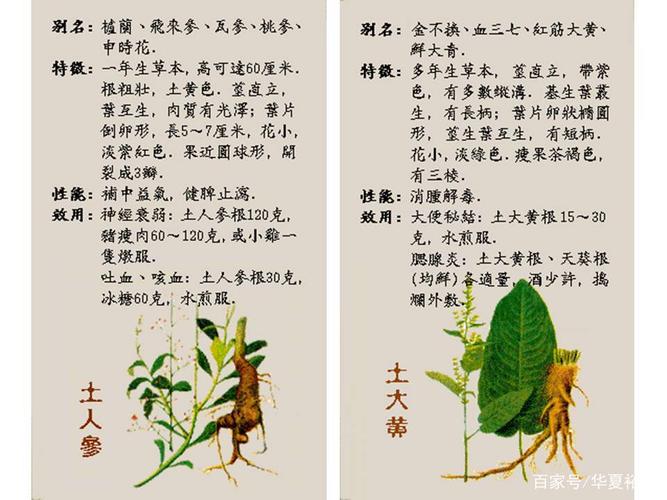 别名：櫨蘭、飛來參、瓦參、桃參、
申時花.
特徵：一年生草本,高可達60厘米.
根粗壯,土黄色.莖直立,
葉互生,肉質有光澤;葉片
倒卵形,長5～7厘米,花小,
淡紫紅色.果近圓球形,開
裂成3瓣.
性能：補中益氣,健脾止瀉.
效用：神經衰弱:土人參根120克,
豬瘦肉60～120克,或小雞一
隻燉服.
吐血、咳血:土人參根30克,
冰糖60克,水煎服.
土人參
别名：金不换、血三七、紅筋大黄、
鮮大青.
特徵：多年生草本,莖直立,帶紫
色,有多數縱溝.基生葉叢
生,有長柄;葉片卵狀橢圓
形,莖生葉互生,有短柄.
花小,淡綠色.瘦果茶褐色,
有三棱.
性能：消腫解毒.
效用：大便秘結:土大黄根15～30
克,水煎服.
腮腺炎:土大黄根、天葵根
(均鮮)各適量,酒少許,搗
爛外敷.
土大黄
百家号/华夏裕